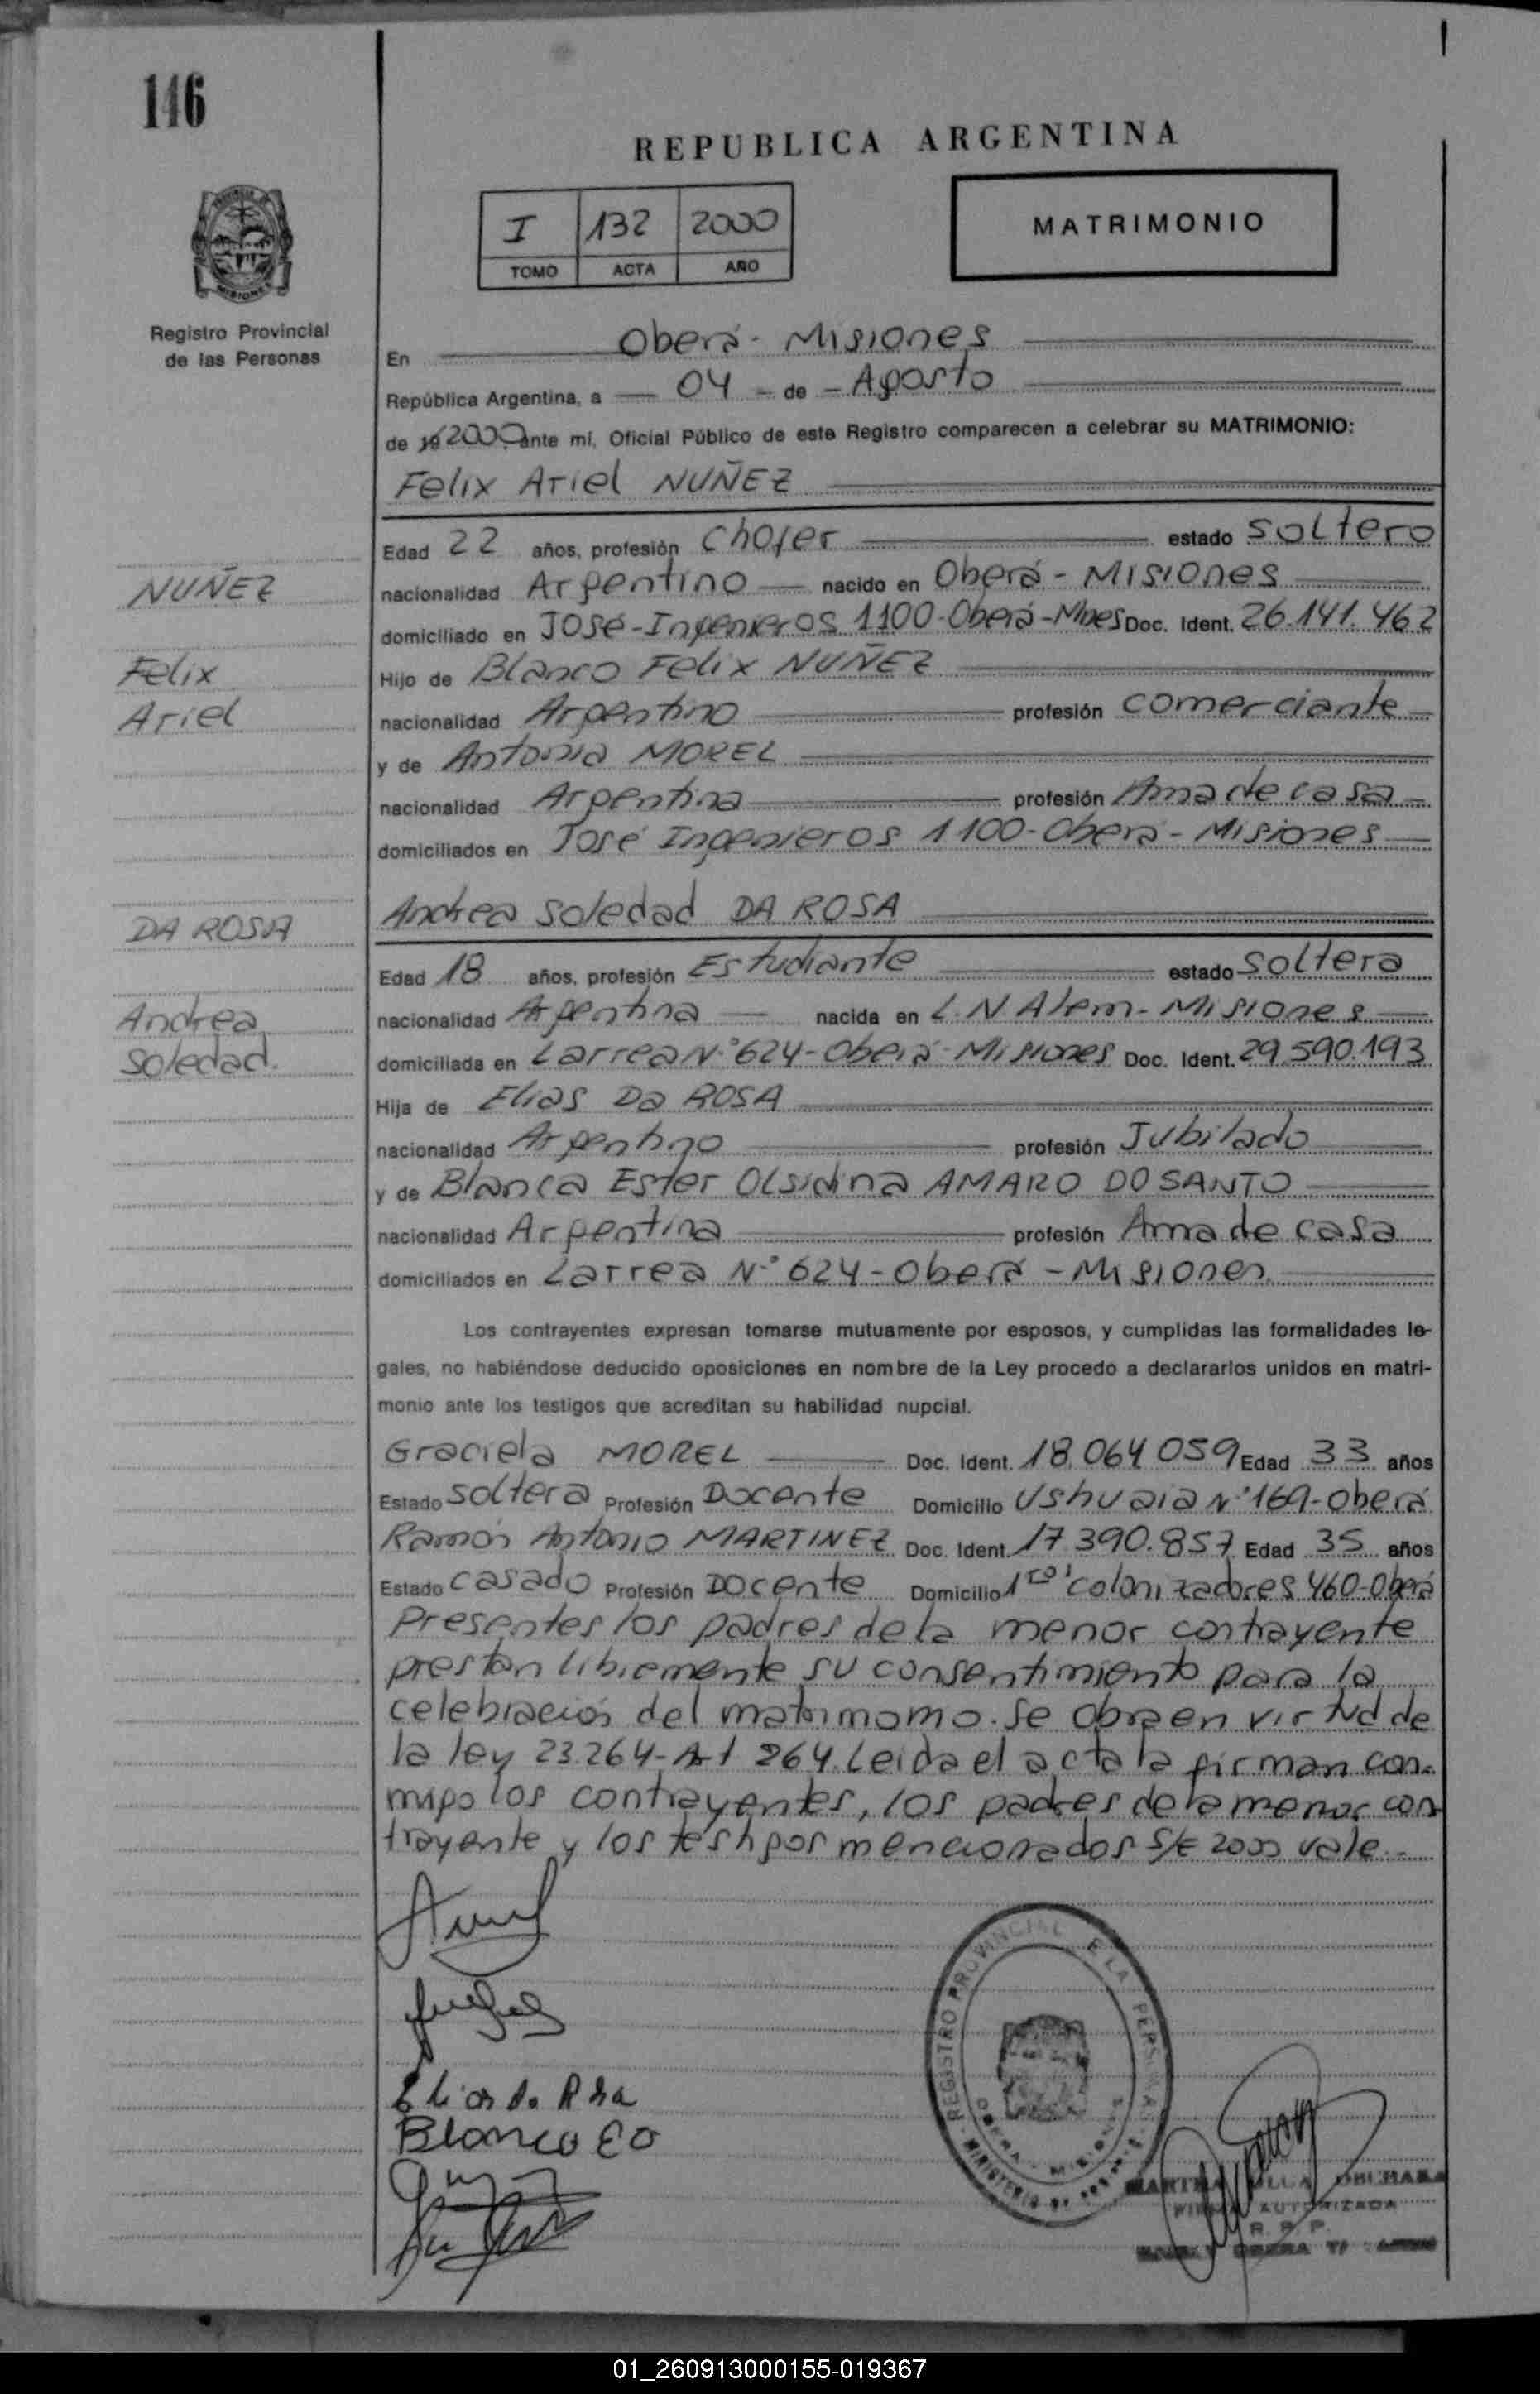 146
REPUBLICA ARGENTINA
I 132 2000
TOMO ACTA AÑO
MATRIMONIO
Registro Provincial
de las Personas
En Oberá - Misiones
República Argentina, a 04 - de - Agosto
de 19 2000 ante mí, Oficial Público de este Registro comparecen a celebrar su MATRIMONIO:
Felix Ariel NUÑEZ
Edad 22 años, profesión Chofer estado Soltero
NUÑEZ
nacionalidad Argentino nacido en Oberá - Misiones
domiciliado en José-Ingenieros 1100-Oberá-Mnes Doc. Ident. 26.141.462
Felix
Hijo de Blanco Felix NUÑEZ
Ariel
nacionalidad Argentino profesión comerciante
y de Antonia MOREL
nacionalidad Argentina profesión Ama de casa
domiciliados en José Ingenieros 1100-Oberá-Misiones
DA ROSA
Andrea Soledad DA ROSA
Edad 18 años, profesión Estudiante estado Soltera
Andrea
nacionalidad Argentina nacida en L.N Alem-Misiones
Soledad.
domiciliada en Larrea N.º 624-Oberá-Misiones Doc. Ident. 29.590.193
Hija de Elias Da ROSA
nacionalidad Argentino profesión Jubilado
y de Blanca Ester Olsidina AMARO DO SANTO
nacionalidad Argentina profesión Ama de casa
domiciliados en Larrea N.º 624-Oberá-Misiones
Los contrayentes expresan tomarse mutuamente por esposos, y cumplidas las formalidades le-
gales, no habiéndose deducido oposiciones en nombre de la Ley procedo a declararlos unidos en matri-
monio ante los testigos que acreditan su habilidad nupcial.
Graciela MOREL Doc. Ident. 18.064 059 Edad 33 años
Estado Soltera Profesión Docente Domicilio Ushuaia N.º 169-Oberá
Ramón Antonio MARTINEZ Doc. Ident. 17.390.857 Edad 35 años
Estado Casado Profesión Docente Domicilio 1ros colonizadores 460-Oberá
Presentes los padres de la menor contrayente
prestan libremente su consentimiento para la
celebración del matrimonio. Se obra en virtud de
la ley 23.264-Art 264. Leida el acta la firman con-
migo los contrayentes, los padres de la menor con
trayente y los testigos mencionados S/E 2000 vale.-
Elias da Rosa
Blanca EO
REGISTRO PROVINCIAL DE LAS PERSONAS
OBERA - MISIONES
FIRMA AUTORIZADA
R. P. P.
01_260913000155-019367